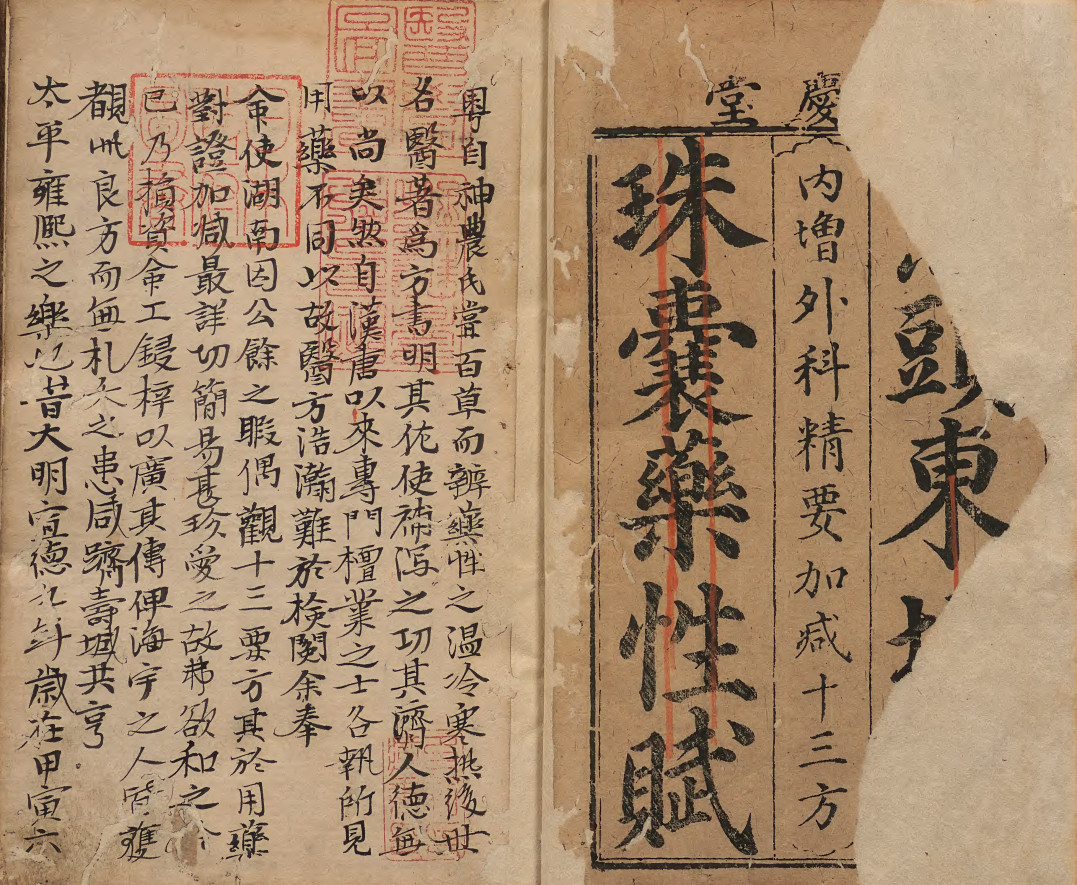 慶堂
頭東
内增外科精要加减十三方
珠囊藥性賦
粤自神農氏嘗百草而辨藥性之温冷寒热後世
名醫著爲方書明其佐使補泻之功其濟人德無
以尚矣然自漢唐以來專門檀業之士各執所見
用藥不同以故醫方浩瀚難於検閱余奉
命使湖南因公餘之暇偶觀十三要方其於用藥
對證加减最詳切簡易甚珍愛之故弗欲和之於
已乃損資命工鋟梓以廣其傳俾海宇之人皆獲
覩此良方而無札夭之患咸躋壽域共亨
太平雍熈之樂也昔大明宣德九年歲在甲寅六